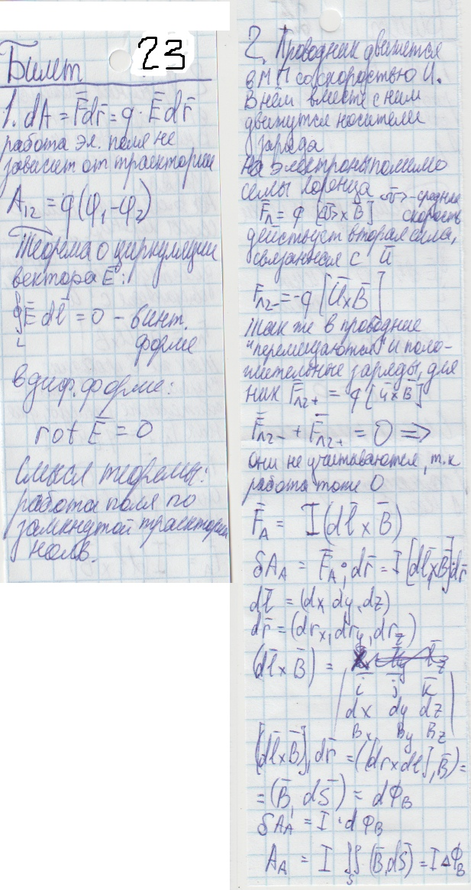 Билет 23
1. dA = F̄dr̄ = q · Ē dr̄
работа эл. поля не
зависит от траектории
A₁₂ = q(φ₁-φ₂)
Теорема о циркуляции
вектора Ē:
∮Ē dl̄ = 0 - в инт.
L форме
в диф. форме:
rot Ē = 0
Смысл теоремы:
работа поля по
замкнутой траектории
ноль.
2. Проводник движется
в МП со скоростью ū.
В нём вместе с ним
движутся носители
заряда
На электроны помимо
силы Лоренца <v̄> - средняя
F̄л = q [<v̄> x B̄] скорость
действует вторая сила,
связанная с ū
F̄л2- = -q [ū x B̄]
Так же в проводнике
"перемещаются" и поло-
жительные заряды, для
них F̄л2+ = q [ū x B̄]
F̄л2- + F̄л2+ = 0 ⇒
Они не учитываются, т.к
работа тоже 0
F̄A = I(dl̄ x B̄)
δAA = F̄A · dr̄ = I [dl̄ x B̄]dr̄
dl̄ = (dx, dy, dz)
dr̄ = (drx, dry, drz)
(dl̄ x B̄) =
| ī j̄ k̄ |
| dx dy dz |
| Bx By Bz |
[dl̄ x B̄], dr̄ = ([dr x dl], B̄) =
= (B̄, dS̄) = dΦB
δAA = I · dΦB
AA = I ∬ (B̄, dS̄) = I ΔΦB
S